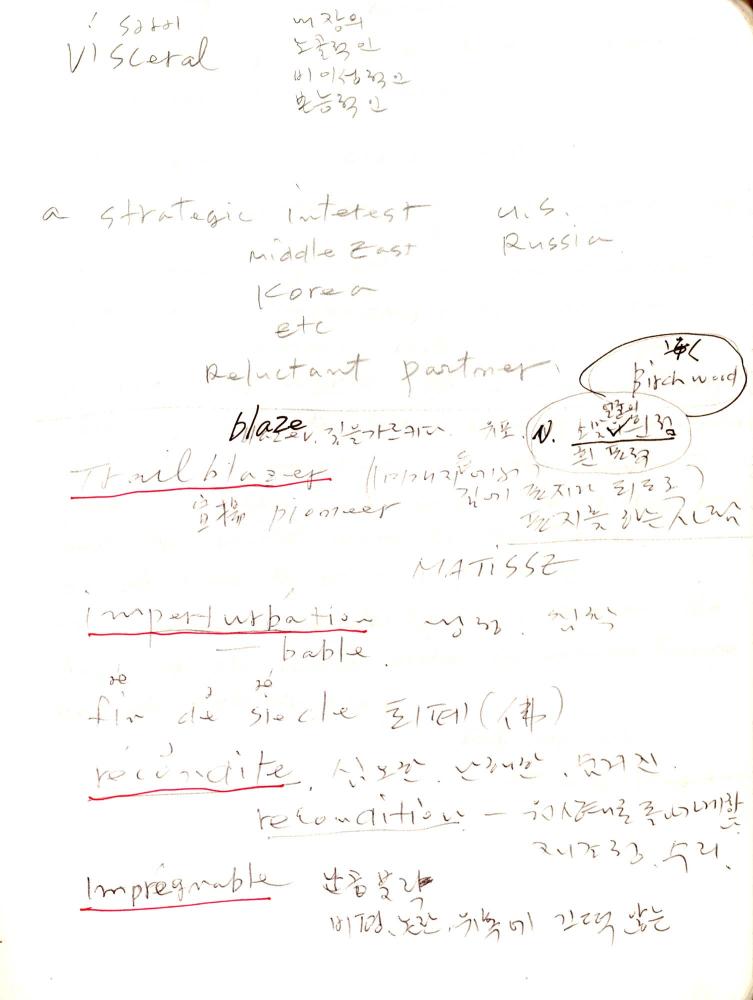 Visceral 내장의
노골적인
비이성적인
본능적인
a strategic interest U.S.
Middle East Russia
Korea
etc
Reluctant partner.
Birch wood
blaze 길을 가르키다. N.
Trail blazer
宣揚 pioneer 표지를 하는 사람
MATISSE
imperturbation 냉정. 침착
— bable
fin de siecle 퇴폐(佛)
recondite. 심오한. 난해한. 숨겨진.
recondition — 원상태로
재조정. 수리.
Impregnable 난공불락
비평, 논란, 유혹에 끄떡 않는